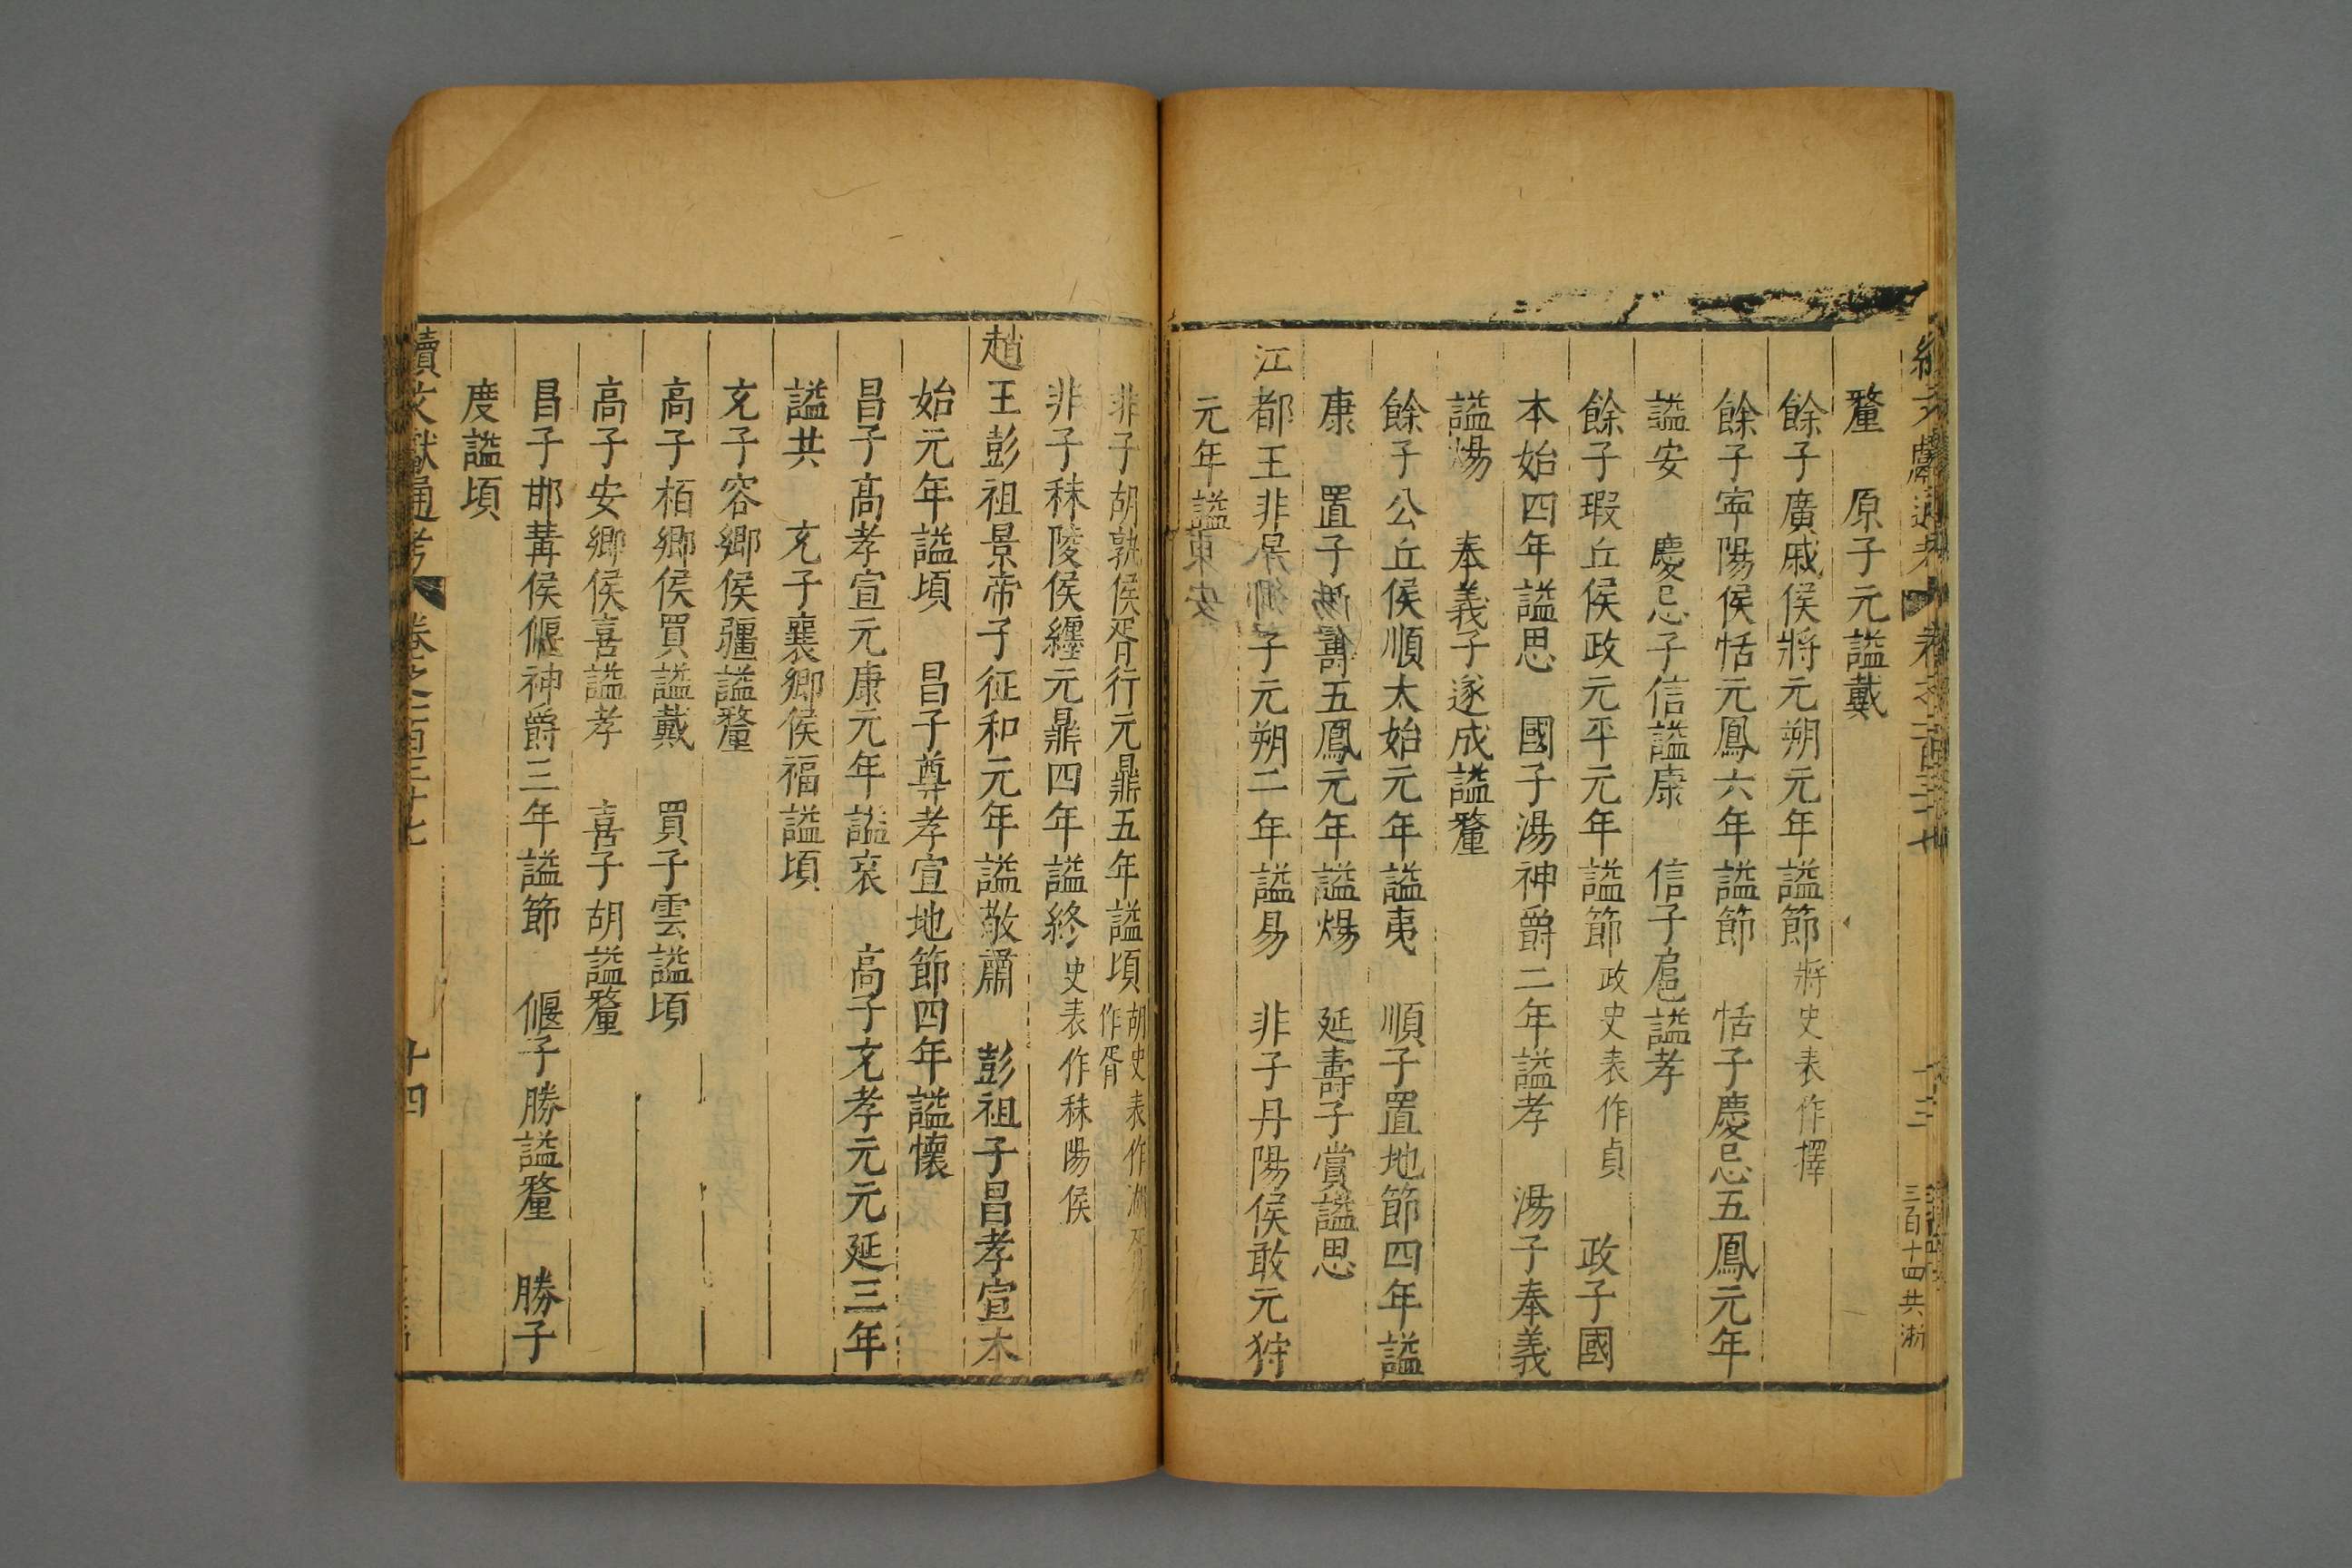 釐　原子元謚戴
餘子廣戚侯將元朔元年謚節將史表作擇
餘子寕陽侯恬元鳳六年謚節　恬子慶忌五鳳元年
謚安　慶忌子信謚康　信子扈謚孝
餘子瑕丘侯政元平元年謚節政史表作貞　政子國
本始四年謚思　國子湯神爵二年謚孝　湯子奉義
謚煬　奉義子遂成謚釐
餘子公丘侯順太始元年謚夷　順子置地節四年謚
康　置子　壽五鳳元年謚煬　延壽子賞謚思
江都王非　子元朔二年謚易　非子丹陽侯敢元狩
元年謚
非子胡孰侯胥行元鼎五年謚頃胡史表作湖
作胥
非子秣陵侯纏元鼎四年謚終史表作秣陽侯
趙王彭祖景帝子征和元年謚敬肅　彭祖子昌孝宣本
始元年謚頃　昌子尊孝宣地節四年謚懷
昌子高孝宣元康元年謚哀　高子充孝元元延三年
謚共　充子襄鄉侯福謚頃
充子容鄉侯疆謚釐
高子栢鄉侯買謚戴　買子雲謚頃
高子安鄉侯喜謚孝　喜子胡謚釐
昌子邯冓侯偃神爵三年謚節　偃子勝謚釐　勝子
度謚頃
續文獻通考　卷之二百三十七　十四